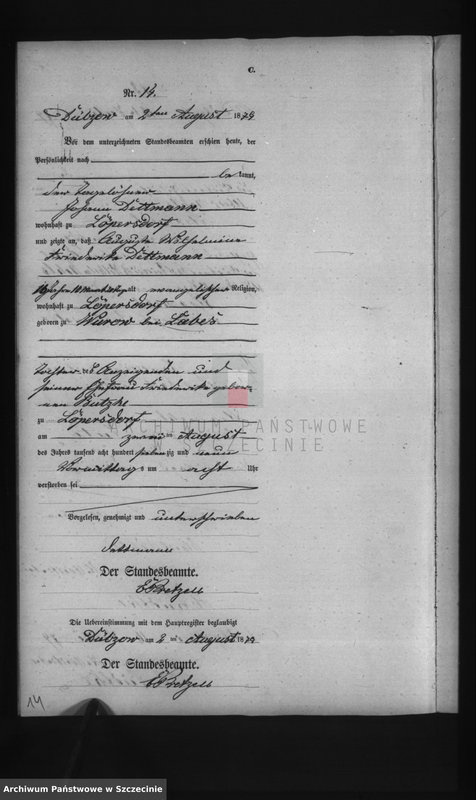 C.
Nr. 14.
Dübzow am 2ten August 1879
Vor dem unterzeichneten Standesbeamten erschien heute, der
Persönlichkeit nach
be kannt,
der Tagelöhner
Johann Dittmann
wohnhaft zu Löpersdorf
und zeigte an, daß Auguste Wilhelmine
Friederike Dittmann
alt evangelischer Religion,
wohnhaft zu Löpersdorf
geboren zu Wurow bei Labes
Tochter des Anzeigenden und
seiner Ehefrau Friederike gebor-
nen Butzke
zu Löpersdorf
am zwei ten August
des Jahres tausend acht hundert siebenzig und neun
Vormittags um acht Uhr
verstorben sei
Vorgelesen, genehmigt und unterschrieben
Dittmann
Der Standesbeamte.
Pretzell
Die Uebereinstimmung mit dem Hauptregister beglaubigt
Dübzow am 2 ten August 1879
Der Standesbeamte.
Pretzell
14
ARCHIWUM PAŃSTWOWE
W SZCZECINIE
Archiwum Państwowe w Szczecinie